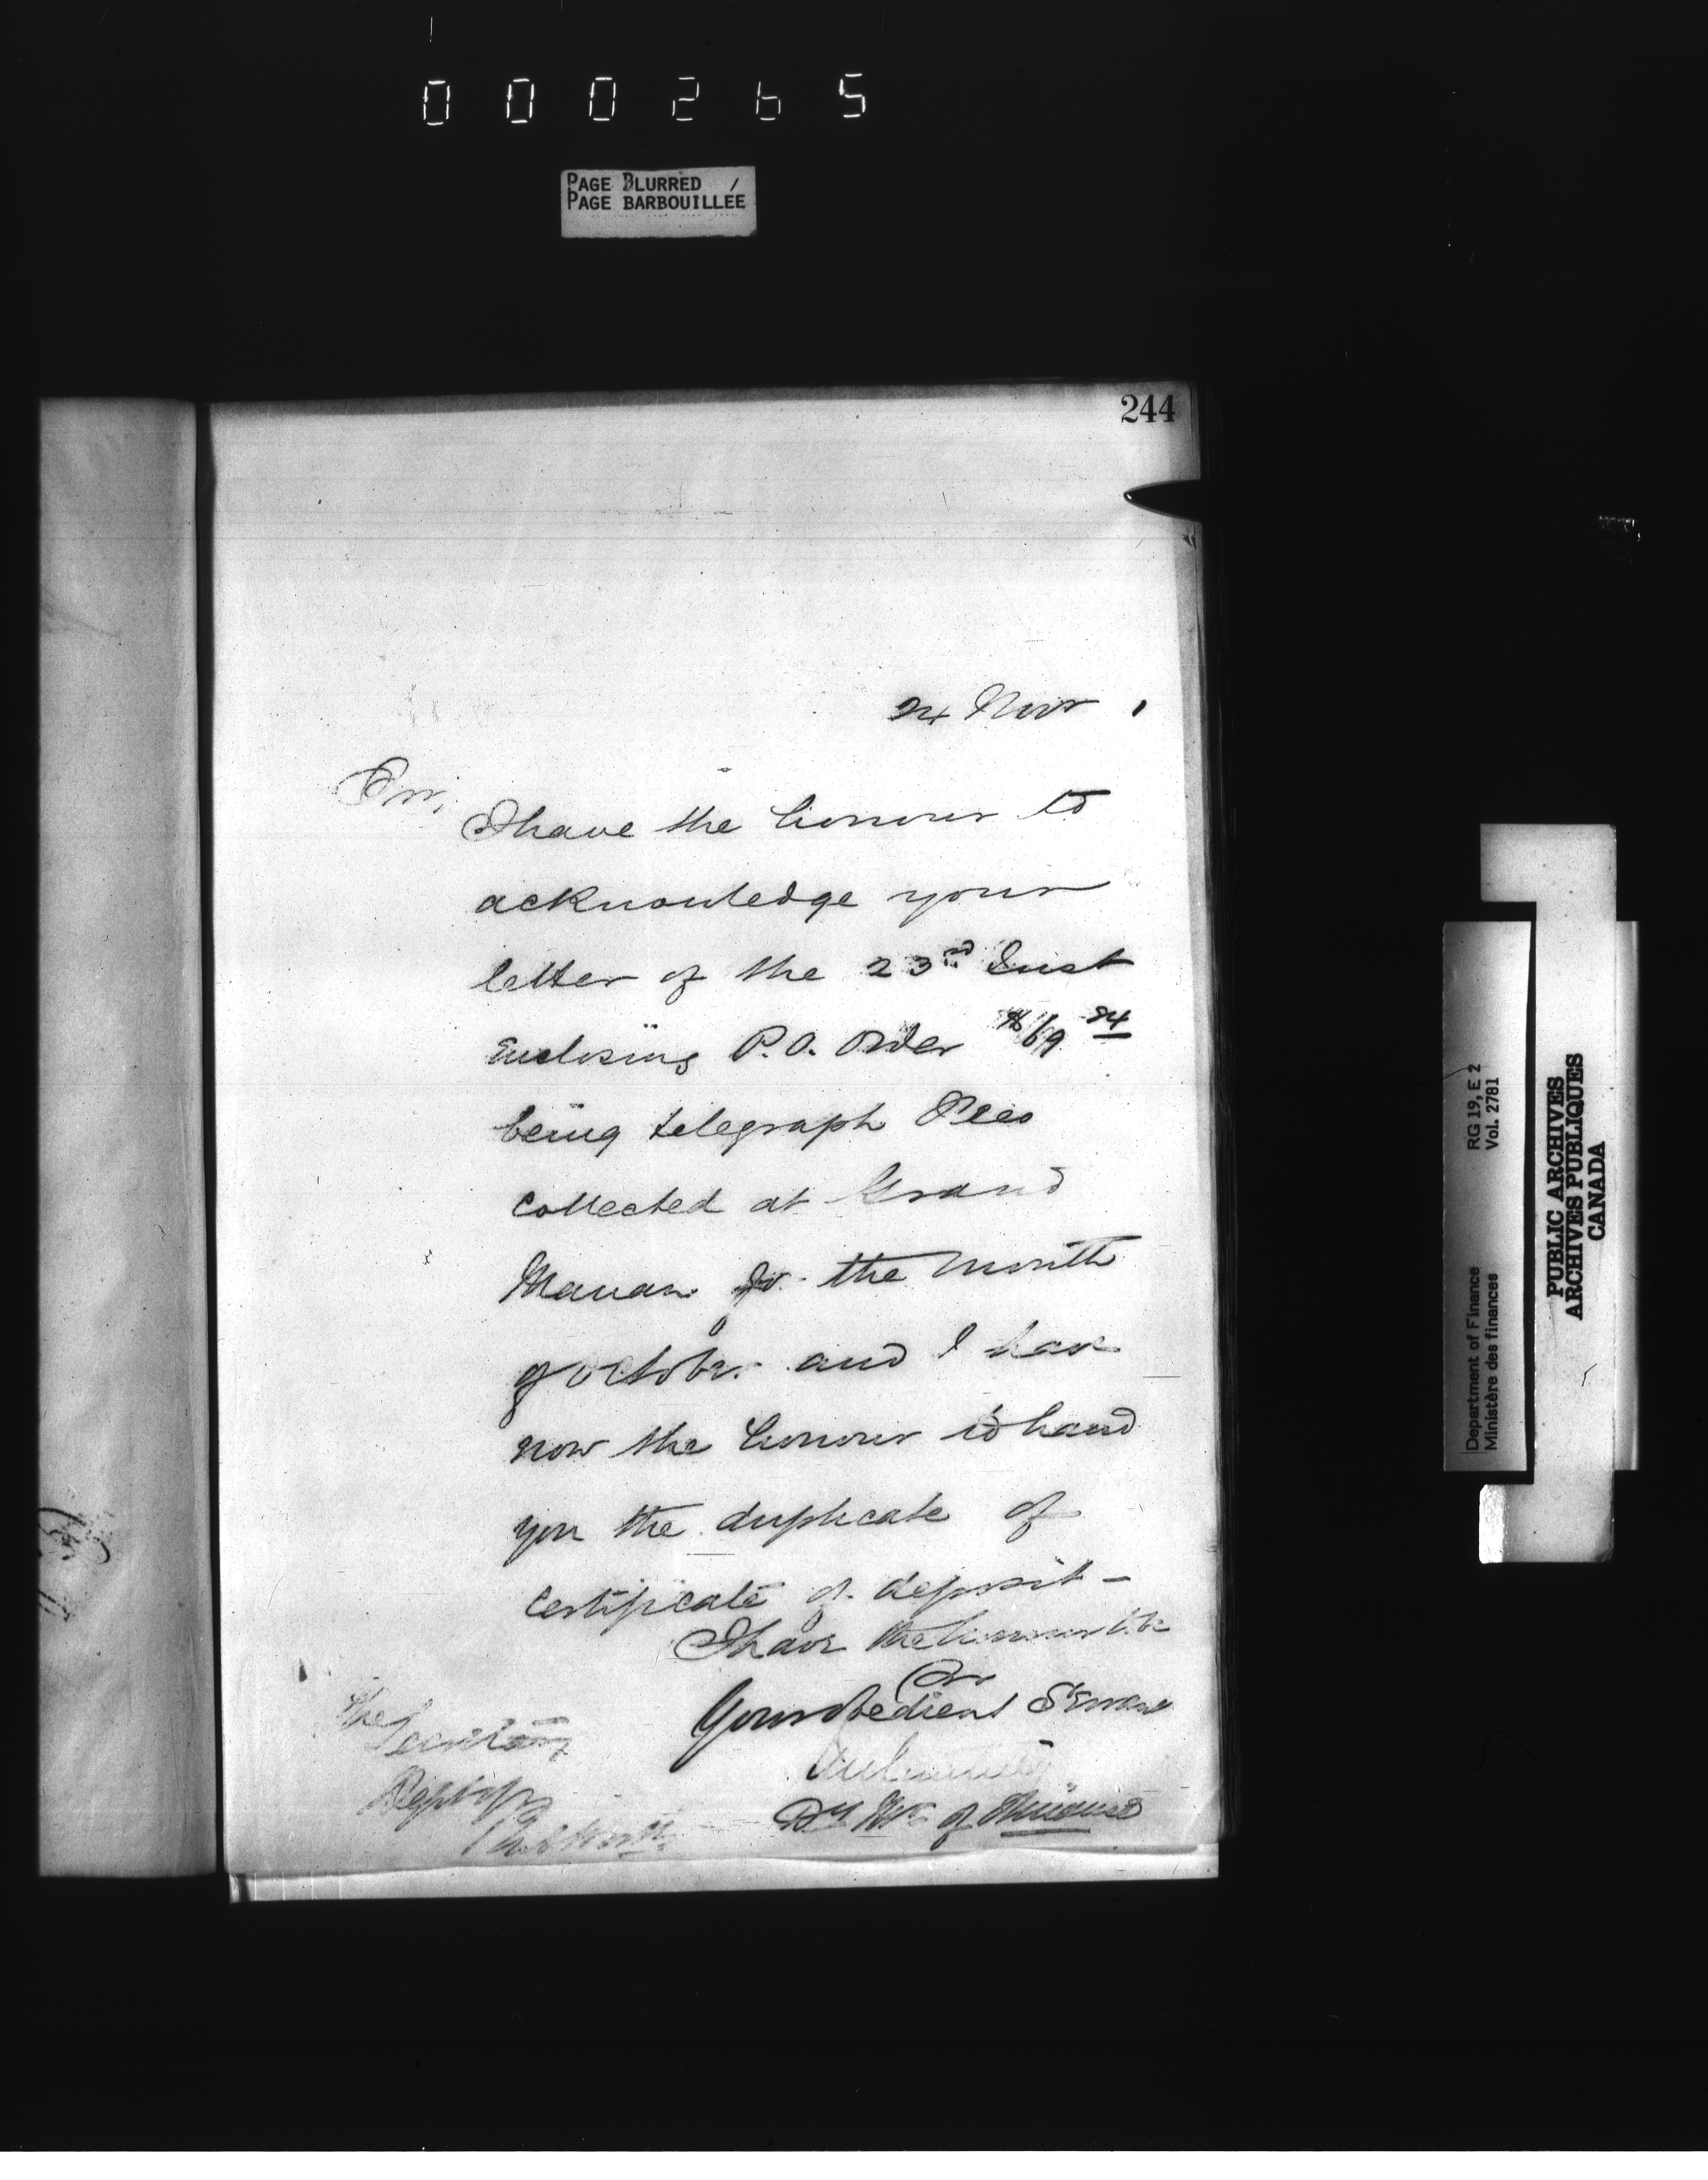 000265
PAGE BLURRED
PAGE BARBOUILLÉE
244
24 Novr
Sir,
I have the honour to
acknowledge your
letter of the 23rd Inst
enclosing P.O. Order $69 24
being telegraph Fees
collected at Grand
Manan for the month
of October and I have
now the honour to hand
you the duplicate of
certificate of deposit -
I have the honour to be
Sir
Your obedient Servant
Dy Mr of Finance
The
Secretary
Dept of
Pub Works
Department of Finance RG 19, E 2
Ministère des finances Vol. 2781
PUBLIC ARCHIVES
ARCHIVES PUBLIQUES
CANADA